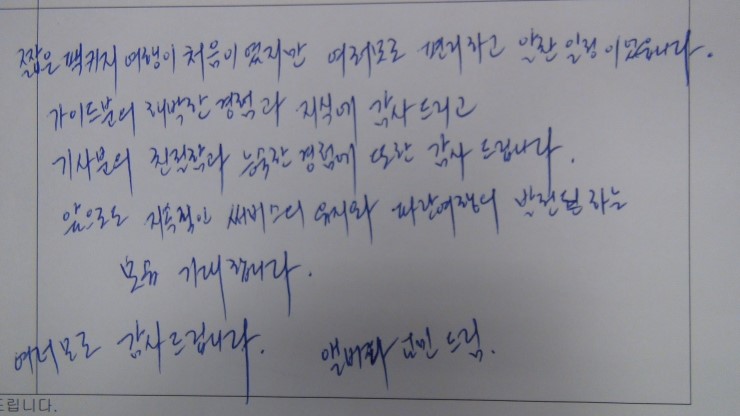 짧은 팩키지 여행이 처음이였지만 여러모로 편리하고 알찬 일정이였습니다.
가이드분의 해박한 경험과 지식에 감사드리고
기사분의 친절함과 능숙한 경험에 또한 감사 드립니다.
앞으로도 지속적인 써비스의 유지와 파란여행의 발전 하는
모습 기대합니다.
여러모로 감사드립니다. 앨버타 드림.
드립니다.